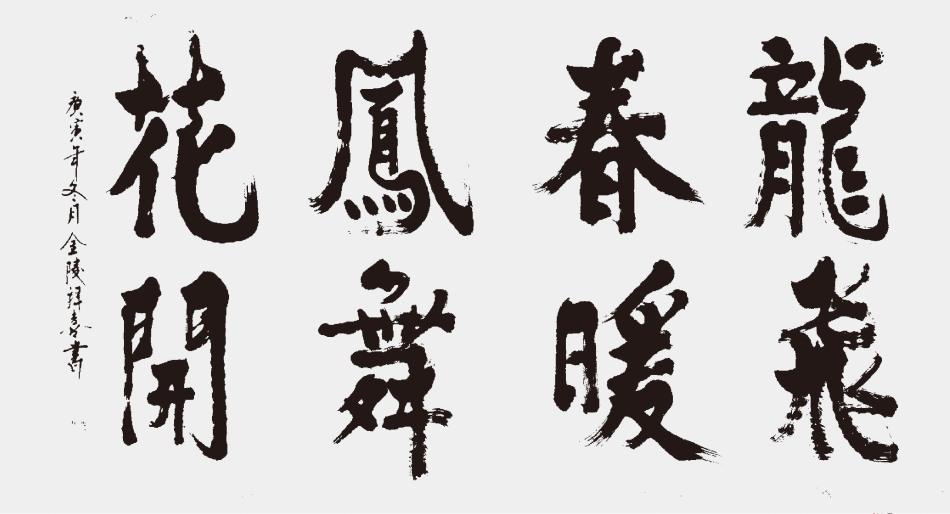 龍飛
春暖
鳳舞
花開
庚寅年冬月金陵祥泰書